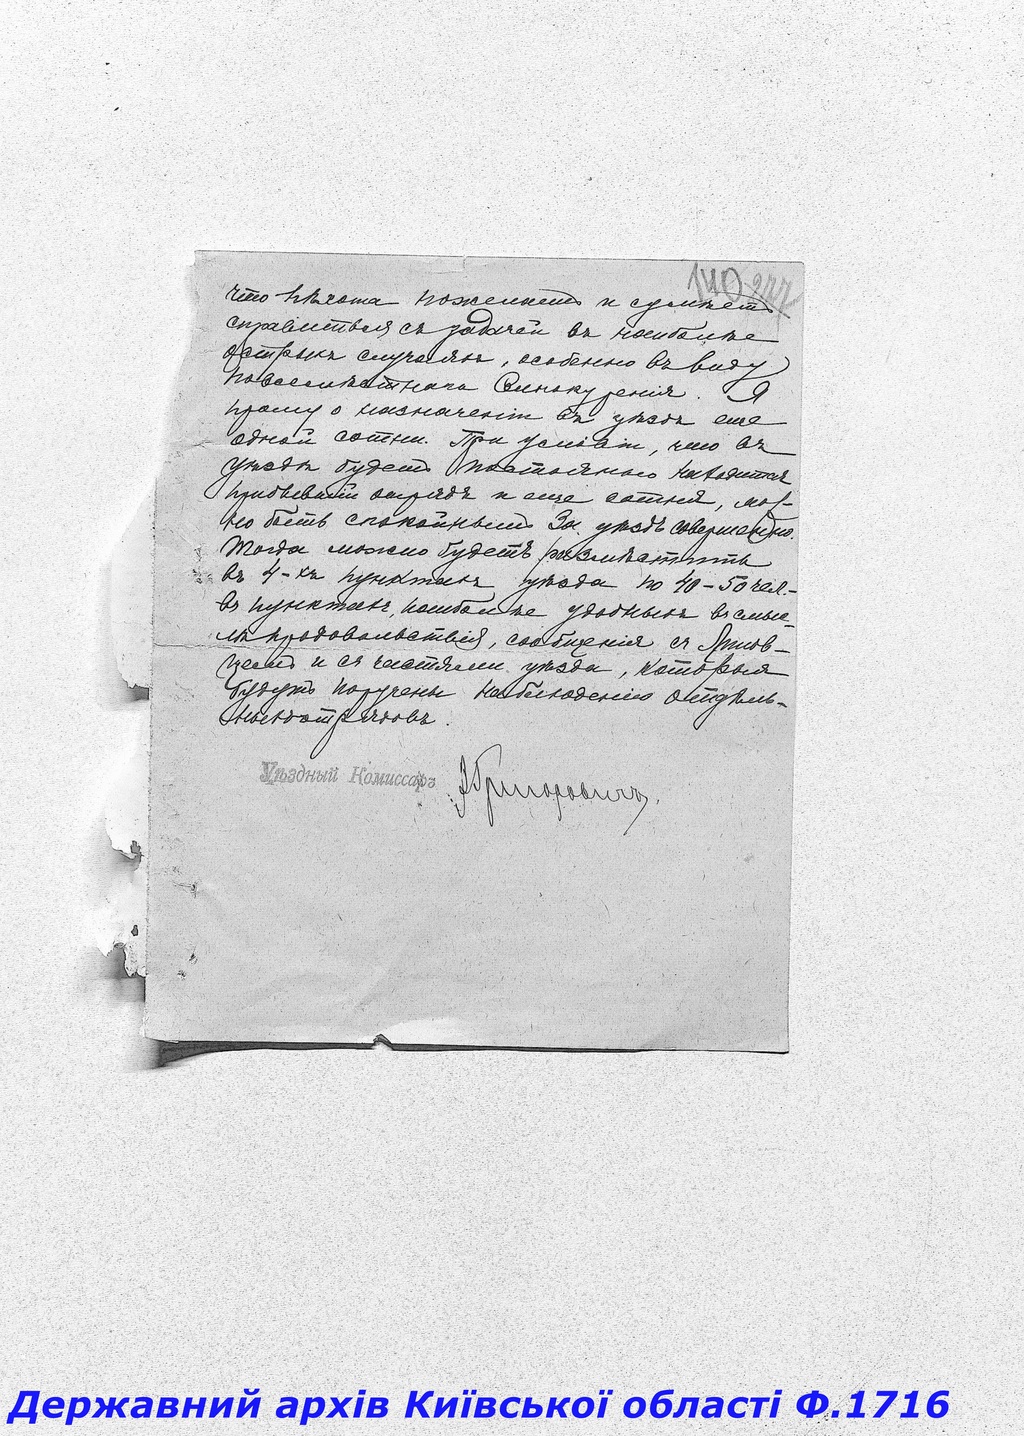 140 277
что пѣхота пожелаетъ и сумѣетъ
справиться съ задачей въ наиболѣе
острыхъ случаяхъ, особенно въ виду
повсемѣстнаго винокуренія. Я
прошу о назначеніи въ уѣздъ еще
одной сотни. При условіи, что въ
уѣздѣ будетъ постоянно находится
прибывшій отрядъ и еще сотня, мож-
но быть спокойнымъ за уѣздъ совершенно.
Тогда можно будетъ размѣстить
въ 4-хъ пунктахъ уѣзда по 40-50 чел.-
въ пунктахъ, наиболѣе удобныхъ въ смыс-
лѣ продовольствія, сообщенія съ
и съ частями уѣзда, которыя
будутъ поручены наблюденію отдѣль-
ныхъ отрядовъ.
Уѣздный Комиссаръ Григоровичъ.
Державний архів Київської області Ф.1716